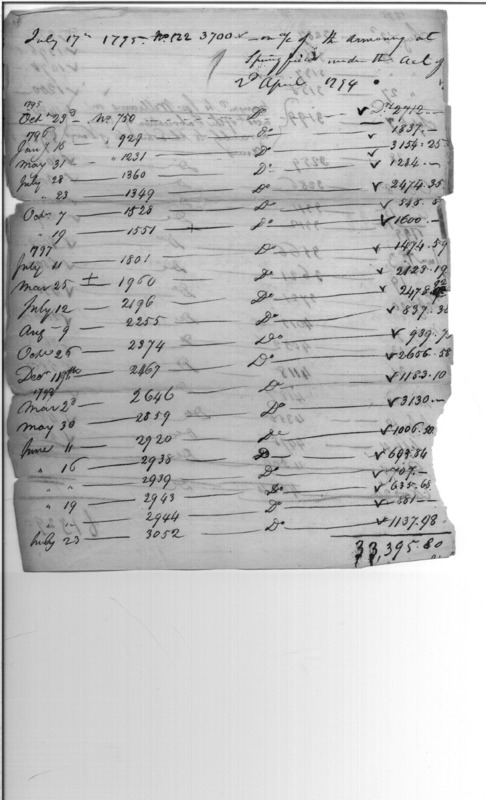 July 17th 1795 No 122 3700 ✓ — on a/c of the armoury at
Springfield under the Act of
2d April 1794
795
Octr 23d — No 750 — Do — ✓ Ds 2742 —
796
Jany 15 — " 929 — Do — ✓ 1837 —
May 31 — " 1231 — Do — ✓ 3154.25
July 28 — 1360 — Do — ✓ 1284 —
" 23 — 1349 — Do — ✓ 2474.35
Octr 7 — 1528 — Do — ✓
" 19 — 1551 — Do — ✓ 1600 —
1797
July 11 — 1801 — Do — ✓ 1474.59
Mar 25 ± 1960 — Do — ✓ 2128.19
July 12 — 2196 — Do — ✓ 2478.92
Aug 9 — 2255 — Do — ✓ 837.32
Octr 26 — 2374 — Do — ✓ 939.7
Decr — 2467 — Do — ✓ 2656.58
1798
Mar 2d — 2646 — Do — ✓ 1183.10
May 30 — 2859 — Do — ✓ 3130 —
June 11 — 2920 — Do — ✓ 1006.50
" 16 — 2938 — Do — ✓ 693.84
" — 2939 — Do — ✓ 707 —
" 19 — 2943 — Do — ✓ 635.65
2944 — Do — ✓ 581 —
July 23 — 3052 — Do — ✓ 1137.98
33,395.80